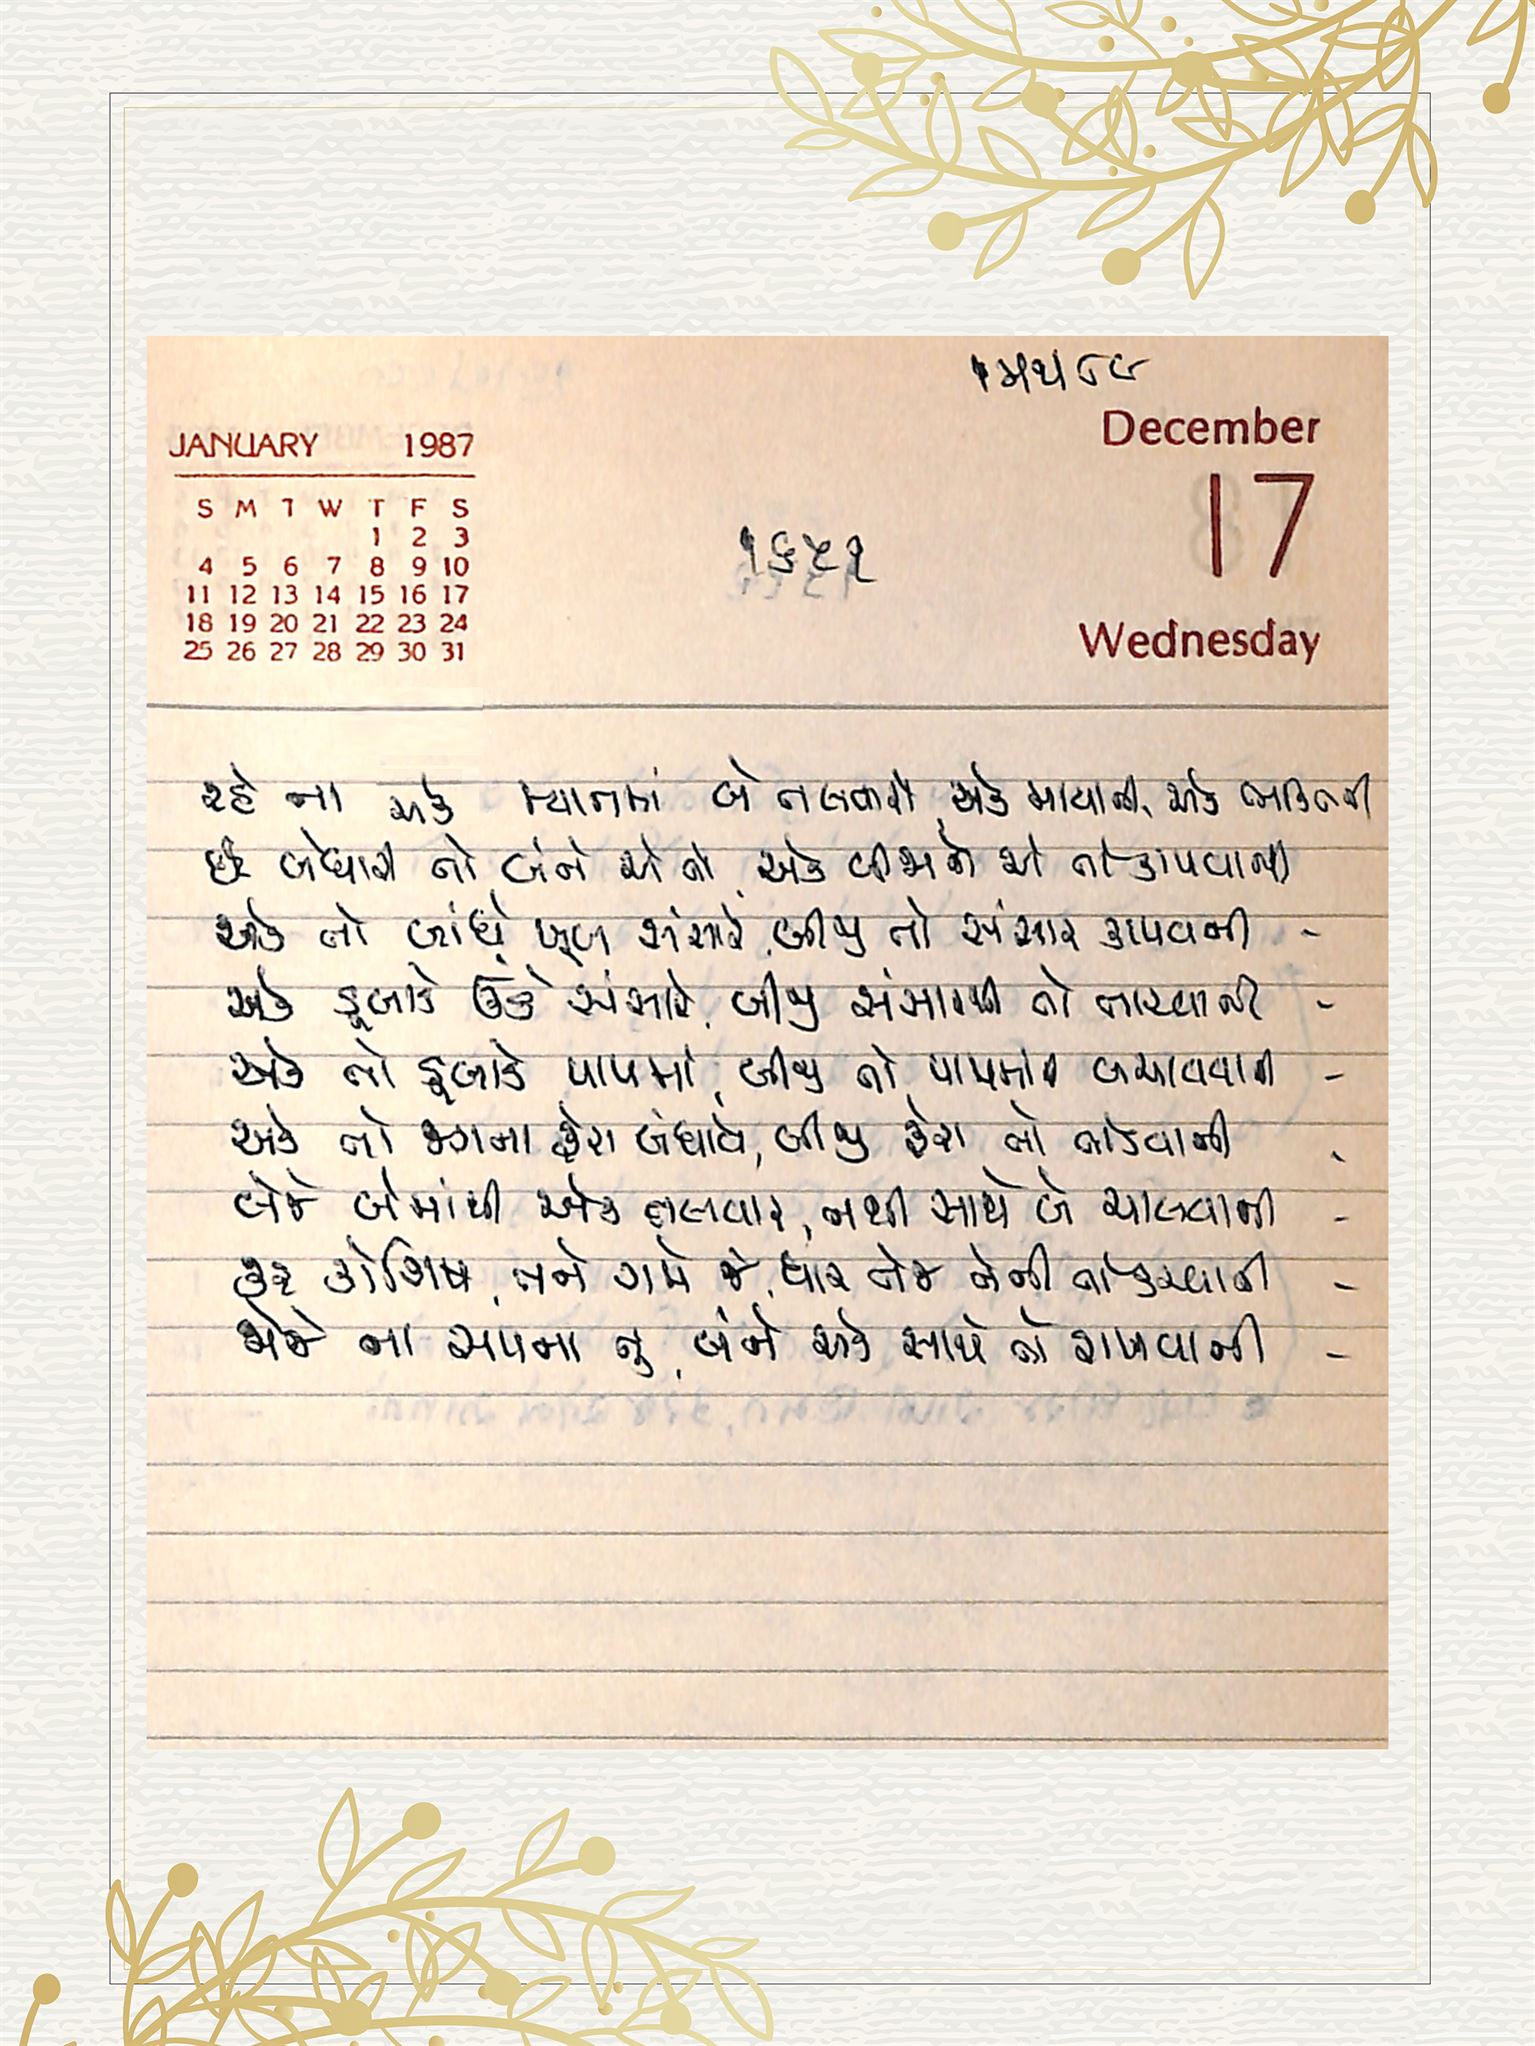 December
JANUARY 1987
17
S M T W T F S
1 2 3
4 5 6 7 8 9 10
11 12 13 14 15 16 17
18 19 20 21 22 23 24
25 26 27 28 29 30 31
Wednesday
રહે ના એક મ્યાનમાં બે તલવારો, એક માયાની, એક ભક્તિની
છે બેધારી તો બંને એ તો, એક બીજાને એ તો કાપવાની
એક તો બાંધે ખૂબ સંસારે, બીજી તો સંસાર કાપવાની -
એક ડૂબાડે ઉંડે સંસારે, બીજી સંસારથી તો તારવાની -
એક તો ડૂબાડે પાપમાં, બીજી તો પાપમાંથી બચાવવાની -
એક તો જગના ફેરા બંધાવે, બીજી ફેરા તો તોડવાની -
લેજે બેમાંથી એક તલવાર, નથી સાથે બે ચાલવાની -
કર કોશિષ, તને ગમે જે, ધાર તેજ તેની તો કરવાની -
સેજે ના સપના તુ, બંને એક સાથે તો રાખવાની -